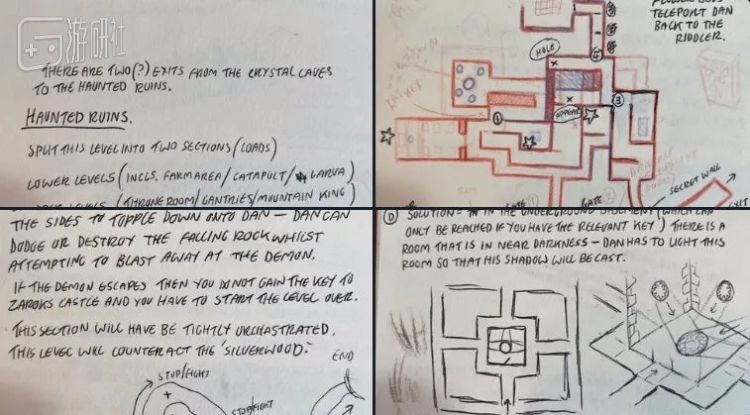 游研社
THERE ARE TWO(?) EXITS FROM THE CRYSTAL CAVES
TO THE HAUNTED RUINS.
HAUNTED RUINS.
SPLIT THIS LEVEL INTO TWO SECTIONS (LOADS)
LOWER LEVELS (INCLS. FARMAREA / CATAPULT / LARVA)
(THRONE ROOM / GANTRIES / MOUNTAIN KING)
TELEPORT DAN
BACK TO THE
RIDDLER.
HOLE
APPEAR
1
3
GATE 1
GATE 2
SECRET WALL
EXIT
THE SIDES TO TOPPLE DOWN ONTO DAN — DAN CAN
DODGE OR DESTROY THE FALLING ROCK WHILST
ATTEMPTING TO BLAST AWAY AT THE DEMON.
IF THE DEMON ESCAPES THEN YOU DO NOT GAIN THE KEY TO
ZAROKS CASTLE AND YOU HAVE TO START THE LEVEL OVER.
THIS SECTION WILL HAVE BE TIGHTLY ORCHASTRATED.
THIS LEVEL WILL COUNTERACT THE 'SILVERWOOD'.
STOP/FIGHT
STOP/FIGHT
END
D SOLUTION = IN THE UNDERGROUND (WHICH CAN
ONLY BE REACHED IF YOU HAVE THE RELEVANT KEY) THERE IS A
ROOM THAT IS IN NEAR DARKNESS — DAN HAS TO LIGHT THIS
ROOM SO THAT HIS SHADOW WILL BE CAST.